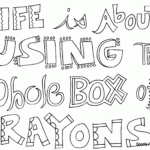 LIFE is ABOUT
USING THE
whole BOX of
CRAYONS